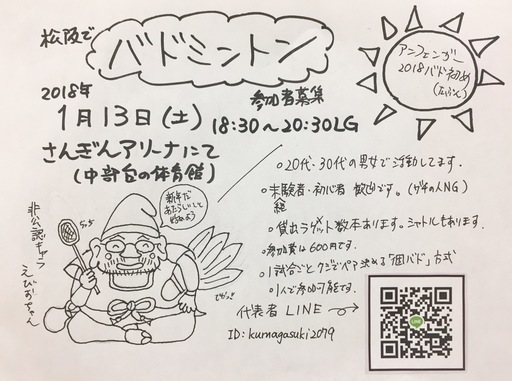 松阪で
バドミントン
アンフェンガー
2018バド初め
2018年
1月13日(土)
参加者募集
18:30~20:30LG
さんぎんアリーナにて
(中部台の体育館)
○20代・30代の男女で活動してます.
○未経験者・初心者 歓迎です。(ガチの人NG)
○貸出ラケット数本あります。シャトルもあります.
○参加費は600円です.
○1試合ごとクジでペア決める「個バド」方式
○1人で参加可能です.
新年だ
あたらしいこと
始めよう
非公認キャラ
えびすちゃん
代表者 LINE
ID: kumagasuki2079
LINE